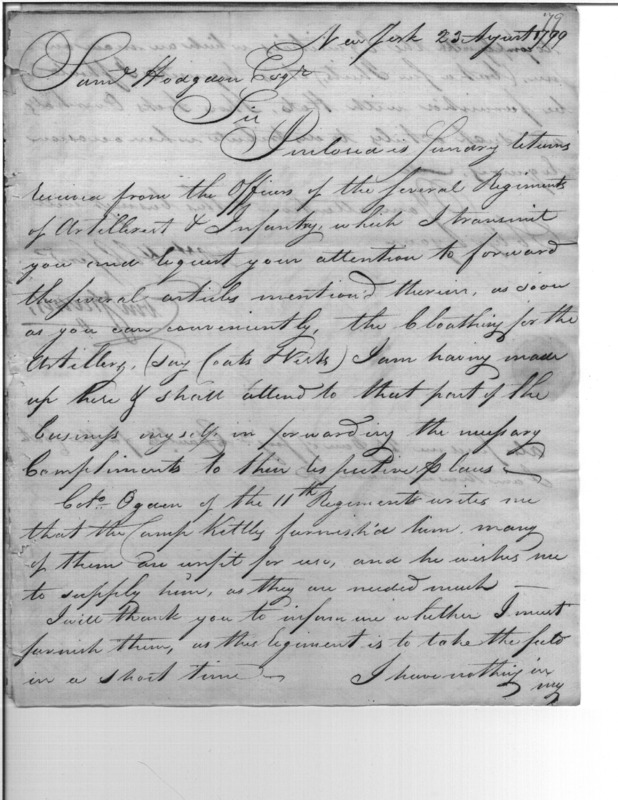 179
New York 23 August 1799
Saml. Hodgdon Esqr
Sir
Inclosed is Sundry returns
received from the Officers of the several Regiments
of Artillerest & Infantry, which I transmit
you and request your attention to forward
the several articles mentiond therein, as soon
as you can conveniently, the Cloathing for the
Artillery, (say Coats & Vests) I am having made
up here & shall attend to that part of the
business myself in forwarding the necessary
Compliments to their respective places -
Colo. Ogden of the 11th Regiment writes me
that the Camp Kettles furnish'd him many
of them are unfit for use, and he wishes me
to supply him, as they are needed much —
I will thank you to inform me whether I must
furnish them, as this Regiment is to take the field
in a short time - I have nothing in
my